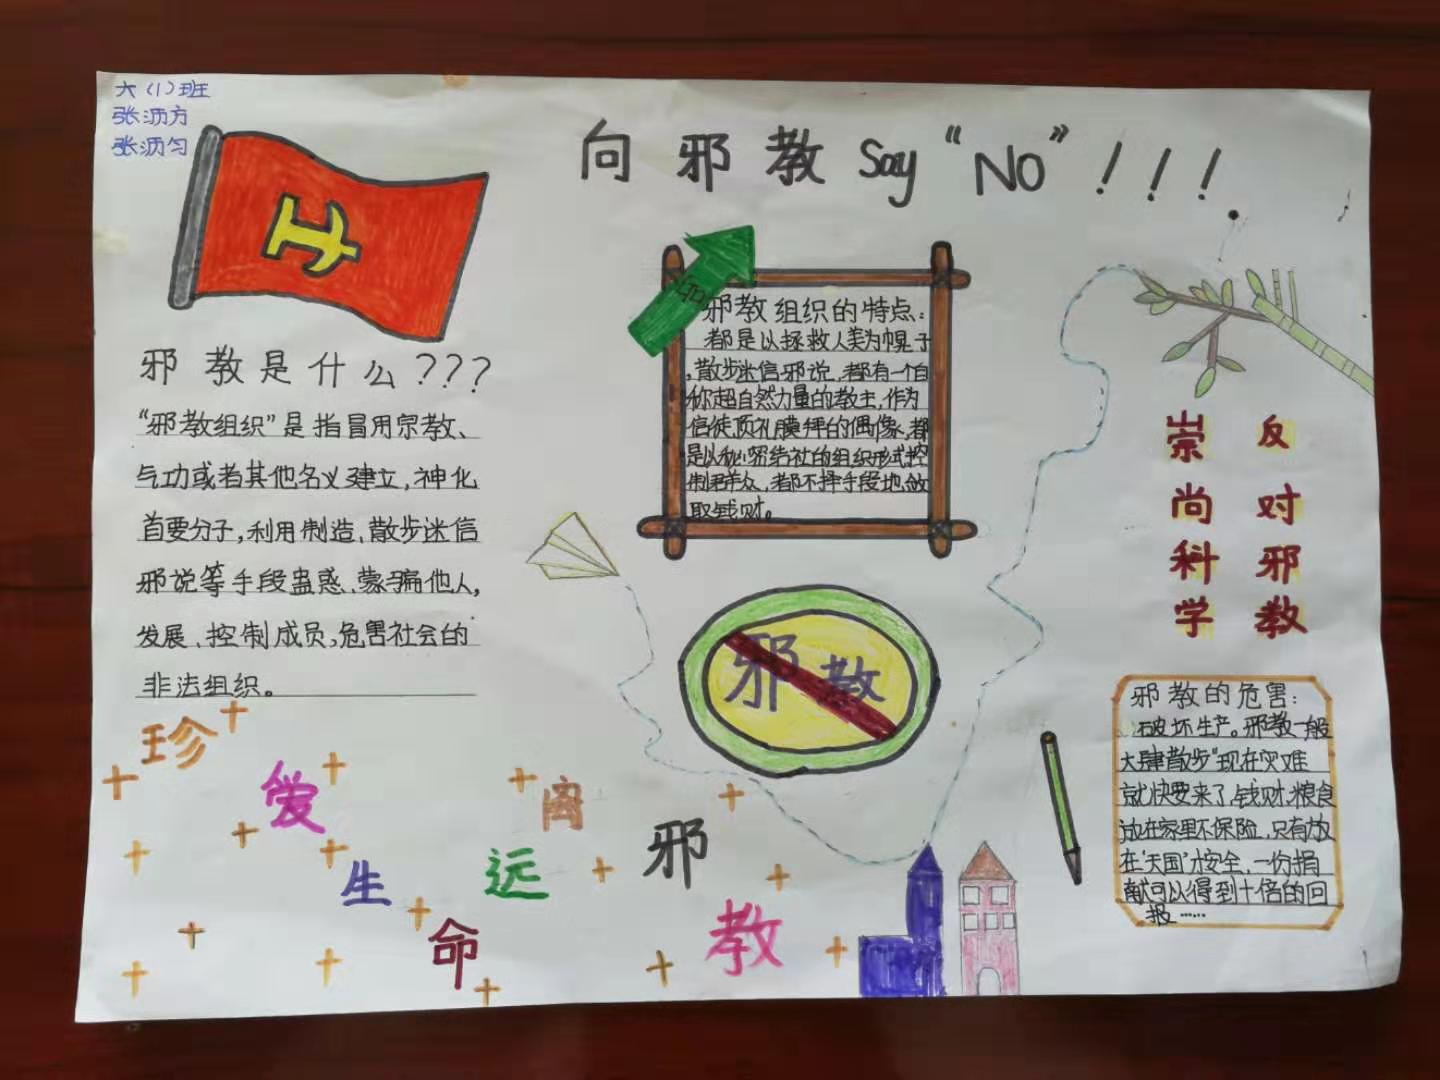 六(1)班
张沥方
张沥匀
向邪教Say“NO”!!!
邪教是什么???
“邪教组织”是指冒用宗教、
气功或者其他名义建立,神化
首要分子,利用制造、散步迷信
邪说等手段蛊惑、蒙骗他人,
发展、控制成员,危害社会的
非法组织。
邪教组织的特点:
都是以拯救人类为幌子
,散步迷信邪说,都有一个自
称超自然力量的教主,作为
信徒顶礼膜拜的偶像,都
是以秘密结社的组织形式控
制群众,都不择手段地敛
取钱财。
崇尚科学
反对邪教
邪教
邪教的危害:
破坏生产。邪教一般
大肆散步“现在灾难
就快要来了,钱财,粮食
放在家里不保险,只有放
在‘天国’才安全,一份捐
献可以得到十倍的回
报……
珍爱生命
远离邪教